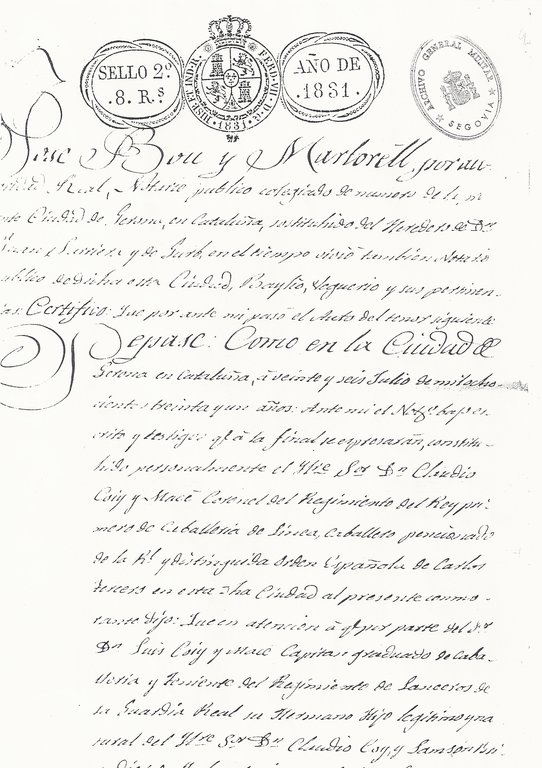 SELLO 2º
.8. Rs
HISP. ET IND. R. FERD. VII. D. G.
.1831.
AÑO DE
.1831.
ARCHIVO GENERAL MILITAR
★ SEGOVIA ★
Jose Bou y Martorell, por au-
Real, Notario publico colegiado de numero de la
Ciudad de Gerona, en Cataluña, sostituhido del Heredero de Dn
y de Jarb, en el tiempo vivió tambien Notario
publico de dicha esta Ciudad, Baylio, Veguerio y sus pertinen-
Certifico: Que por ante mi pasó el Auto del tenor siguiente
Sepase: Como en la Ciudad de
Gerona en Cataluña, á veinte y seis Julio de mil ocho-
cientos treinta y un años: Ante mi el Noto bajo es-
crito y testigos qe á la final se expresarán, constitu-
hido personalmente el Iltre Sor Dn Claudio
Coig y Macé Coronel del Regimiento del Rey pri-
mero de Caballeria de Linea, Caballero pencionado
de la Rl y distinguida Orden Española de Carlos
tercero en esta dha Ciudad al presente conmo-
rante Dijo: Que en atencion á qe por parte del Sr
Dn Luis Coig y Macé Capitan graduado de Caba-
lleria y Teniente del Regimiento de Lanceros de
la Guardia Real su Hermano Hijo legitimo y na-
tural del Iltre Sor Dn Claudio Coy, y Samsón Bri-